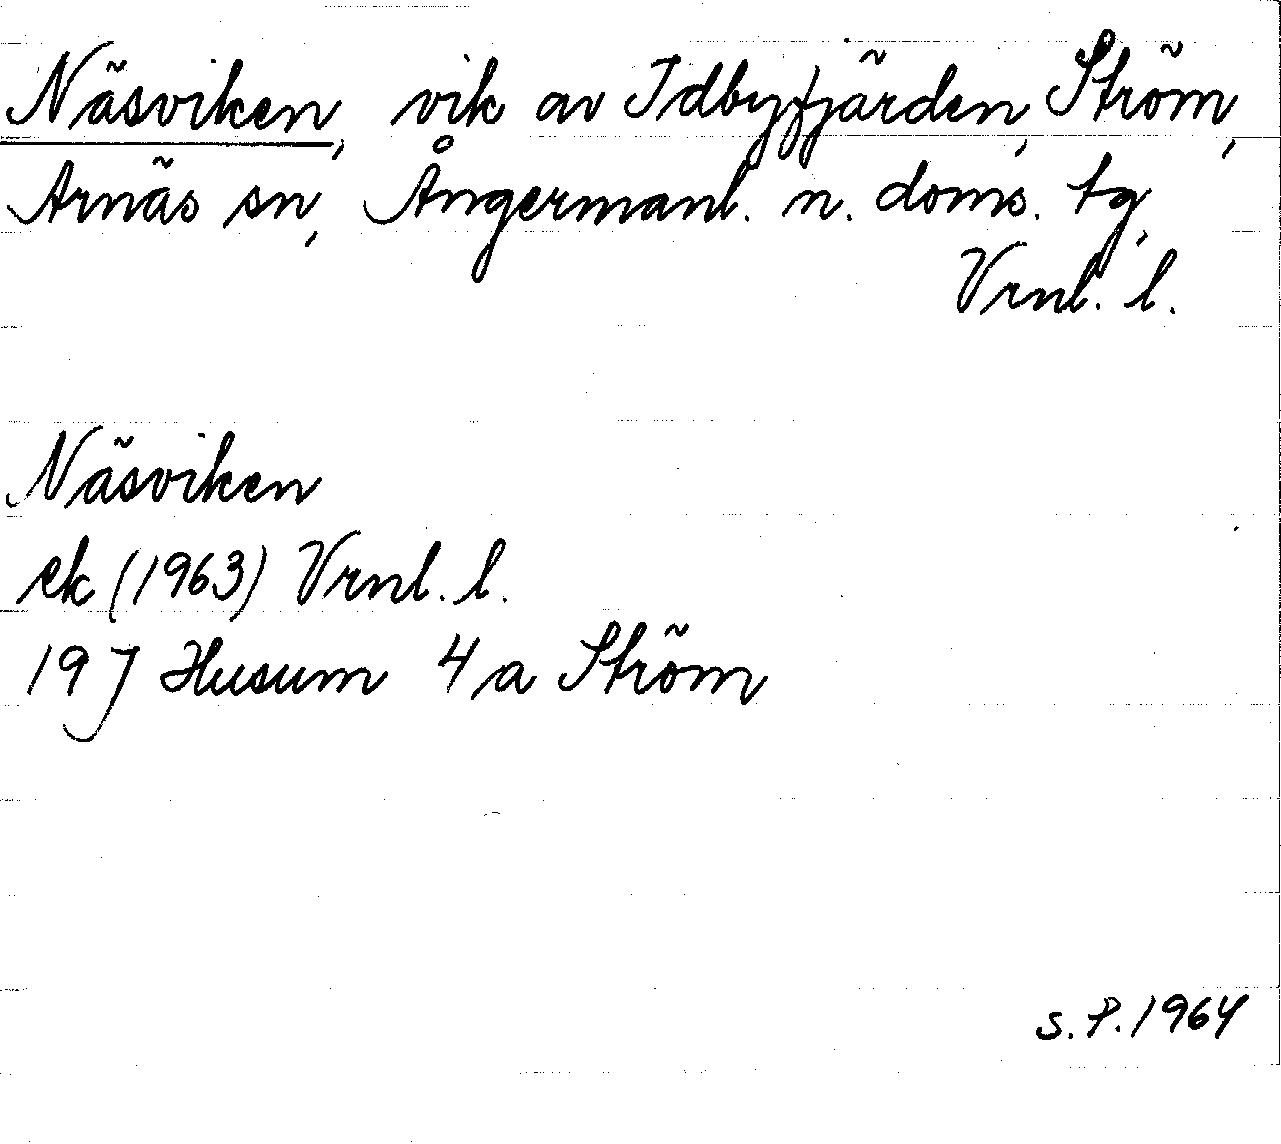 Näsviken, vik av Idbyfjärden, Ström,
Arnäs sn, Ångermanl. n. doms. tg,
Vrnl. l.
Näsviken
ek (1963) Vrnl. l.
19 J Husum 4 a Ström
S.P. 1964